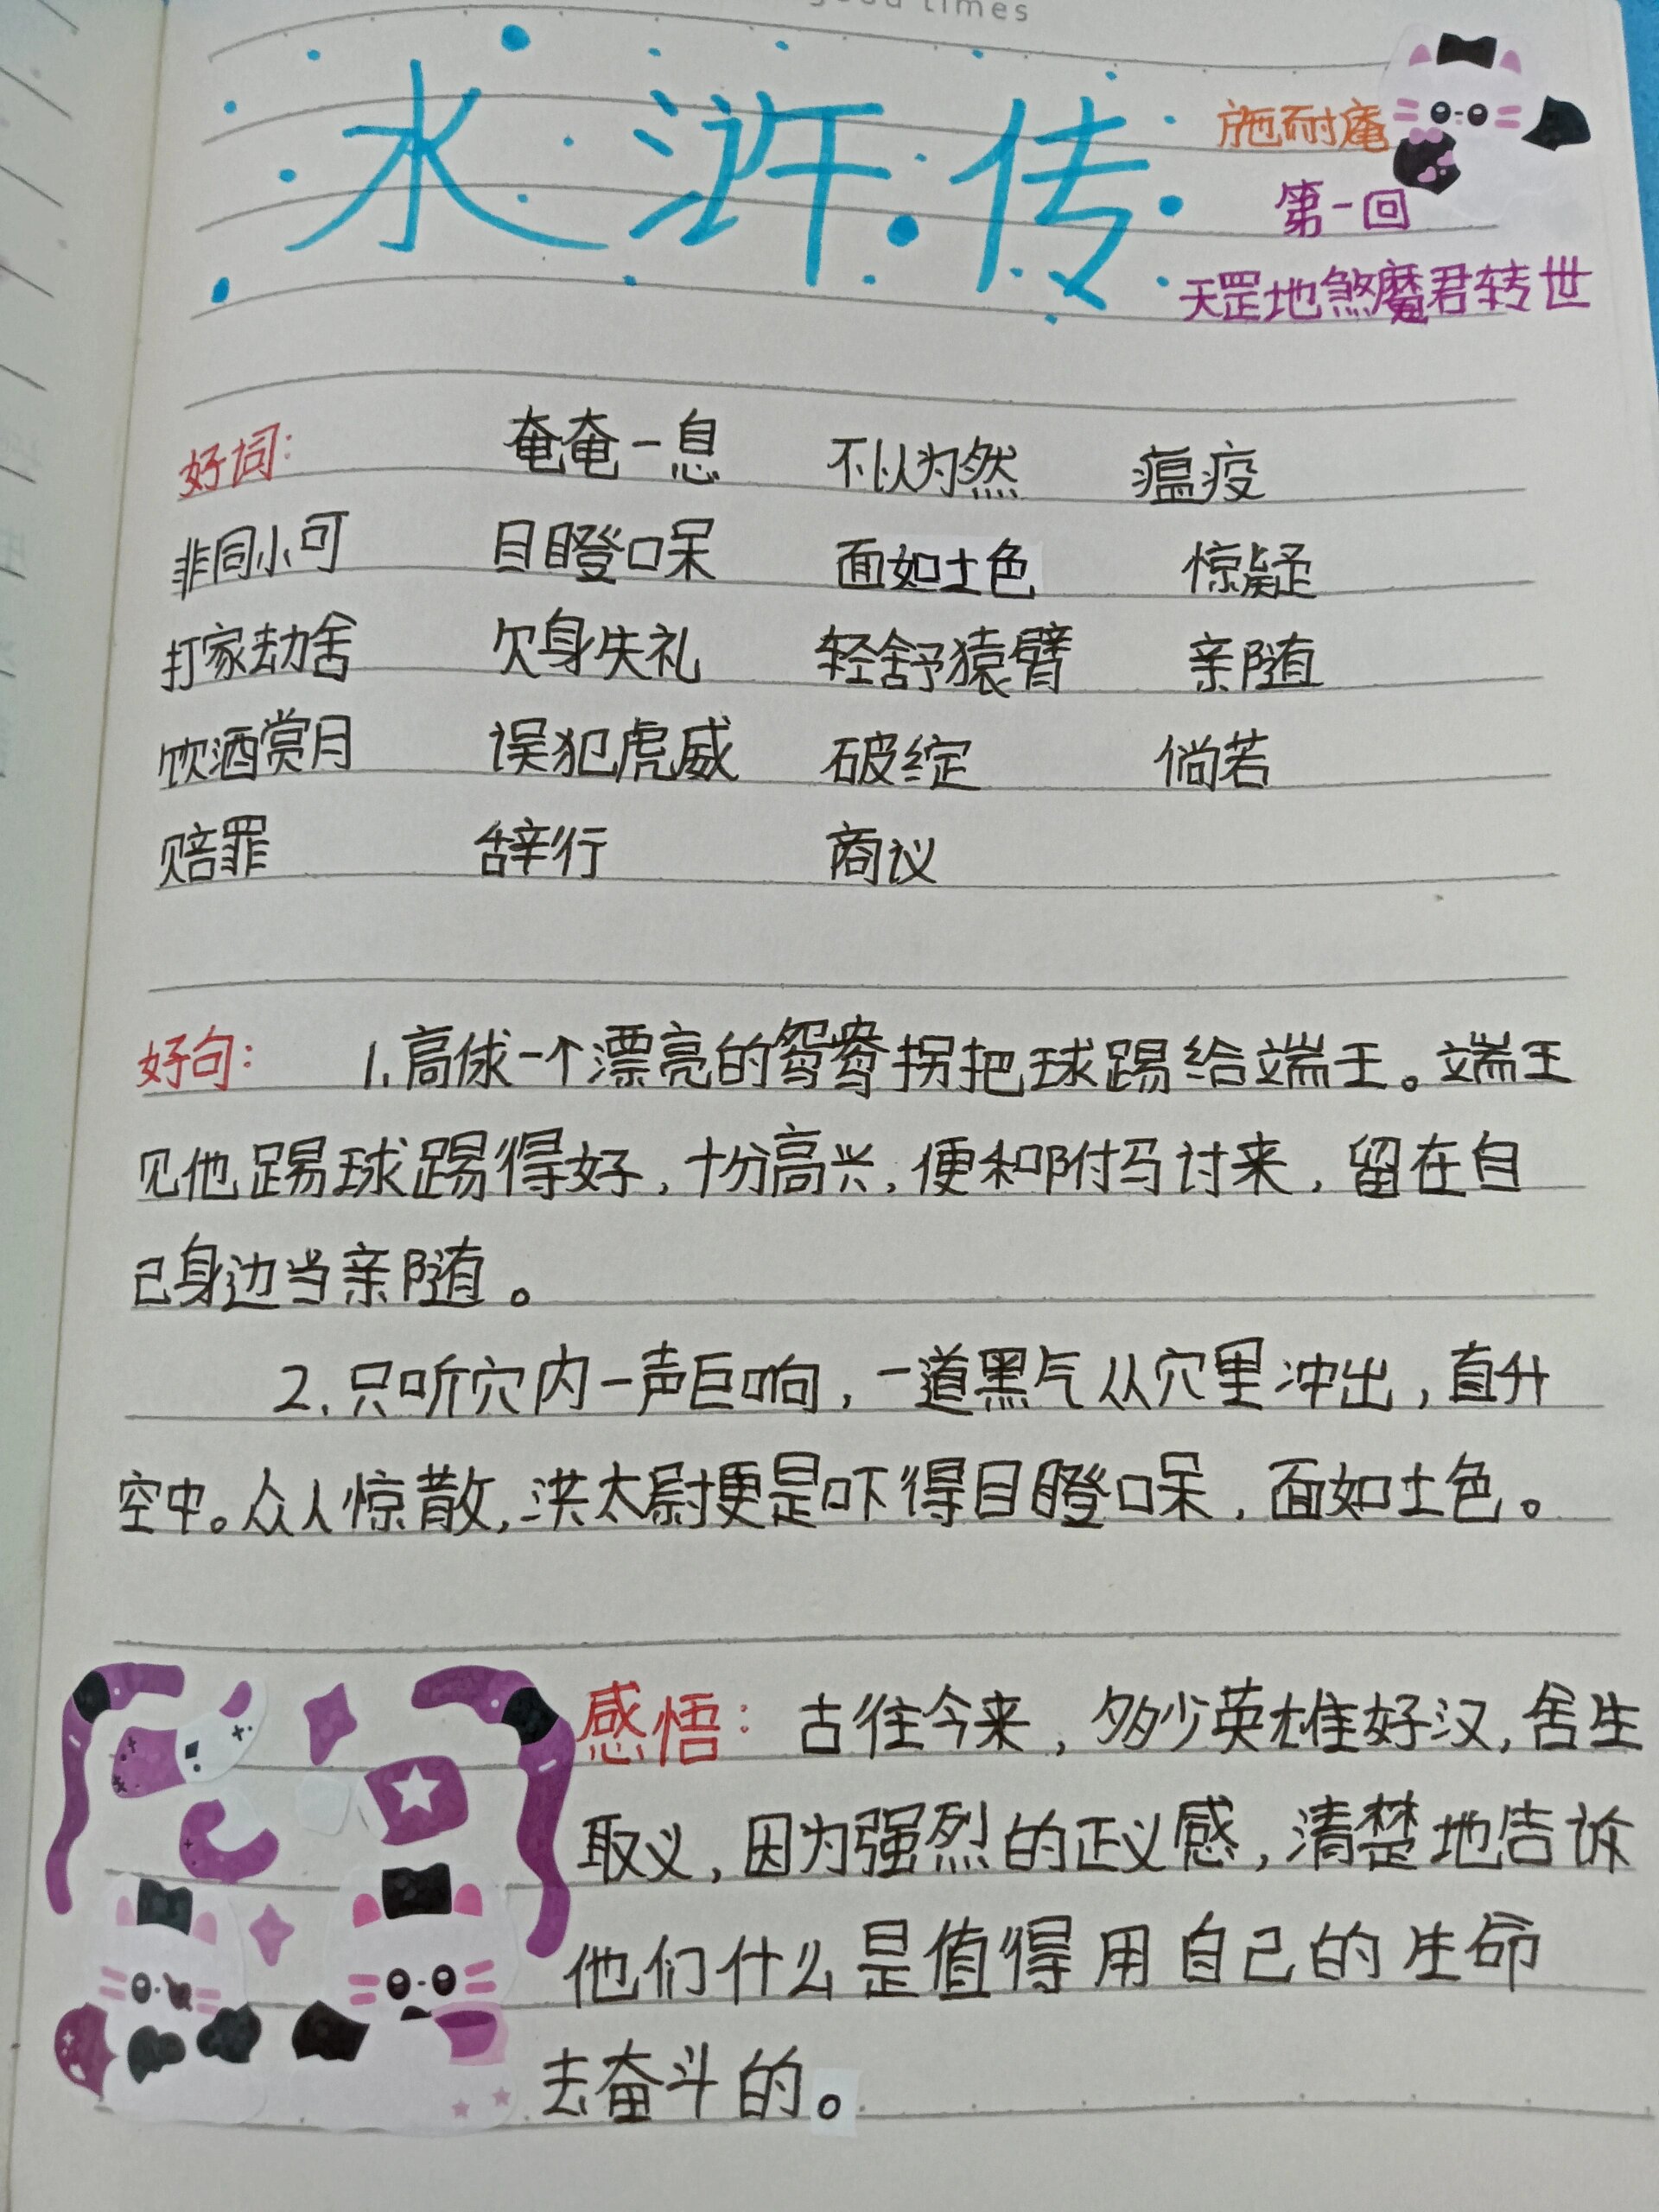 good times
水浒传
施耐庵
第一回
天罡地煞魔君转世
好词: 奄奄一息 不以为然 瘟疫
非同小可 目瞪口呆 面如土色 惊疑
打家劫舍 欠身失礼 轻舒猿臂 亲随
饮酒赏月 误犯虎威 破绽 倘若
赔罪 辞行 商议
好句: 1.高俅一个漂亮的鸳鸯拐把球踢给端王。端王
见他踢球踢得好,十分高兴,便和附马讨来,留在自
己身边当亲随。
2.只听穴内一声巨响,一道黑气从穴里冲出,直升
空中。众人惊散,洪太尉更是吓得目瞪口呆,面如土色。
感悟: 古往今来,多少英雄好汉,舍生
取义,因为强烈的正义感,清楚地告诉
他们什么是值得用自己的生命
去奋斗的。